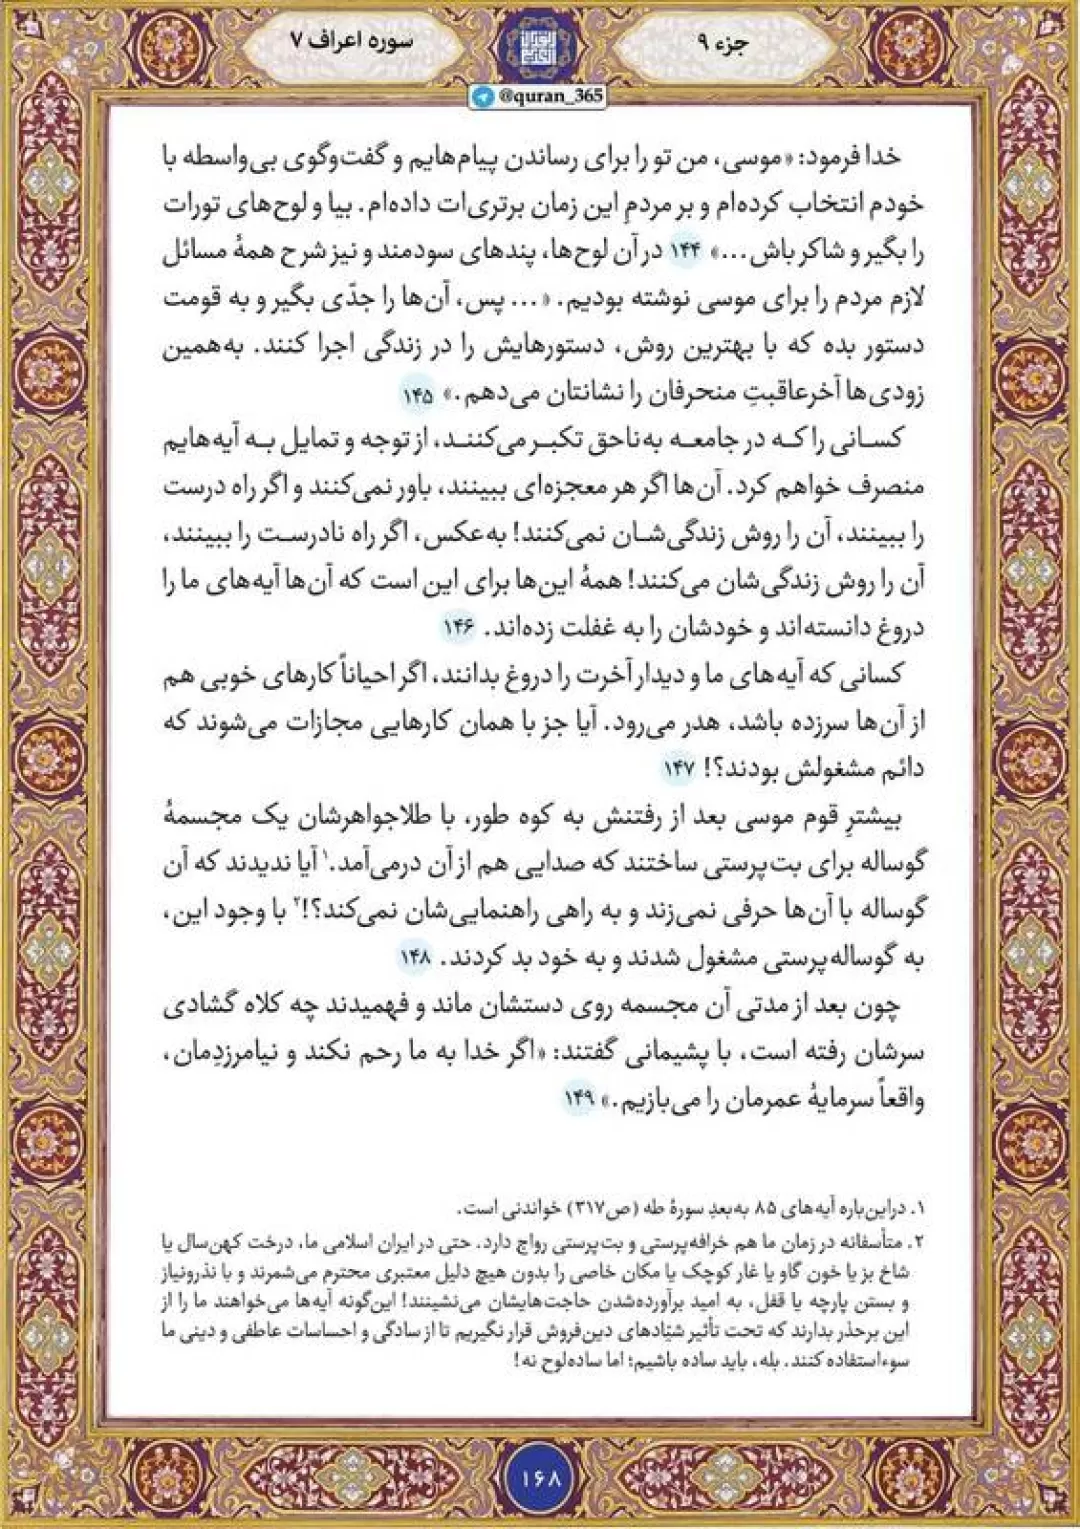 جزء ۹
سوره اعراف ۷
@quran_365
خدا فرمود: «موسی، من تو را برای رساندن پیام‌هایم و گفت‌وگوی بی‌واسطه با
خودم انتخاب کرده‌ام و بر مردمِ این زمان برتری‌ات داده‌ام. بیا و لوح‌های تورات
را بگیر و شاکر باش...» ۱۴۴ در آن لوح‌ها، پندهای سودمند و نیز شرح همهٔ مسائل
لازم مردم را برای موسی نوشته بودیم. «... پس، آن‌ها را جدّی بگیر و به قومت
دستور بده که با بهترین روش، دستورهایش را در زندگی اجرا کنند. به‌همین
زودی‌ها آخرعاقبتِ منحرفان را نشانتان می‌دهم.» ۱۴۵
کسانی را که در جامعه به‌ناحق تکبر می‌کنند، از توجه و تمایل به آیه‌هایم
منصرف خواهم کرد. آن‌ها اگر هر معجزه‌ای ببینند، باور نمی‌کنند و اگر راه درست
را ببینند، آن را روش زندگی‌شان نمی‌کنند! به‌عکس، اگر راه نادرست را ببینند،
آن را روش زندگی‌شان می‌کنند! همهٔ این‌ها برای این است که آن‌ها آیه‌های ما را
دروغ دانسته‌اند و خودشان را به غفلت زده‌اند. ۱۴۶
کسانی که آیه‌های ما و دیدار آخرت را دروغ بدانند، اگر احیاناً کارهای خوبی هم
از آن‌ها سرزده باشد، هدر می‌رود. آیا جز با همان کارهایی مجازات می‌شوند که
دائم مشغولش بودند؟! ۱۴۷
بیشترِ قوم موسی بعد از رفتنش به کوه طور، با طلاجواهرشان یک مجسمهٔ
گوساله برای بت‌پرستی ساختند که صدایی هم از آن درمی‌آمد.۱ آیا ندیدند که آن
گوساله با آن‌ها حرفی نمی‌زند و به راهی راهنمایی‌شان نمی‌کند؟!۲ با وجود این،
به گوساله‌پرستی مشغول شدند و به خود بد کردند. ۱۴۸
چون بعد از مدتی آن مجسمه روی دستشان ماند و فهمیدند چه کلاه گشادی
سرشان رفته است، با پشیمانی گفتند: «اگر خدا به ما رحم نکند و نیامرزدِمان،
واقعاً سرمایهٔ عمرمان را می‌بازیم.» ۱۴۹
۱. دراین‌باره آیه‌های ۸۵ به‌بعدِ سورهٔ طه (ص۳۱۷) خواندنی است.
۲. متأسفانه در زمان ما هم خرافه‌پرستی و بت‌پرستی رواج دارد. حتی در ایران اسلامی ما، درخت کهن‌سال یا
شاخ بز یا خون گاو یا غار کوچک یا مکان خاصی را بدون هیچ دلیل معتبری محترم می‌شمرند و با نذرونیاز
و بستن پارچه یا قفل، به امید برآورده‌شدن حاجت‌هایشان می‌نشینند! این‌گونه آیه‌ها می‌خواهند ما را از
این برحذر بدارند که تحت تأثیر شیّادهای دین‌فروش قرار نگیریم تا از سادگی و احساسات عاطفی و دینی ما
سوءاستفاده کنند. بله، باید ساده باشیم؛ اما ساده‌لوح نه!
۱۶۸